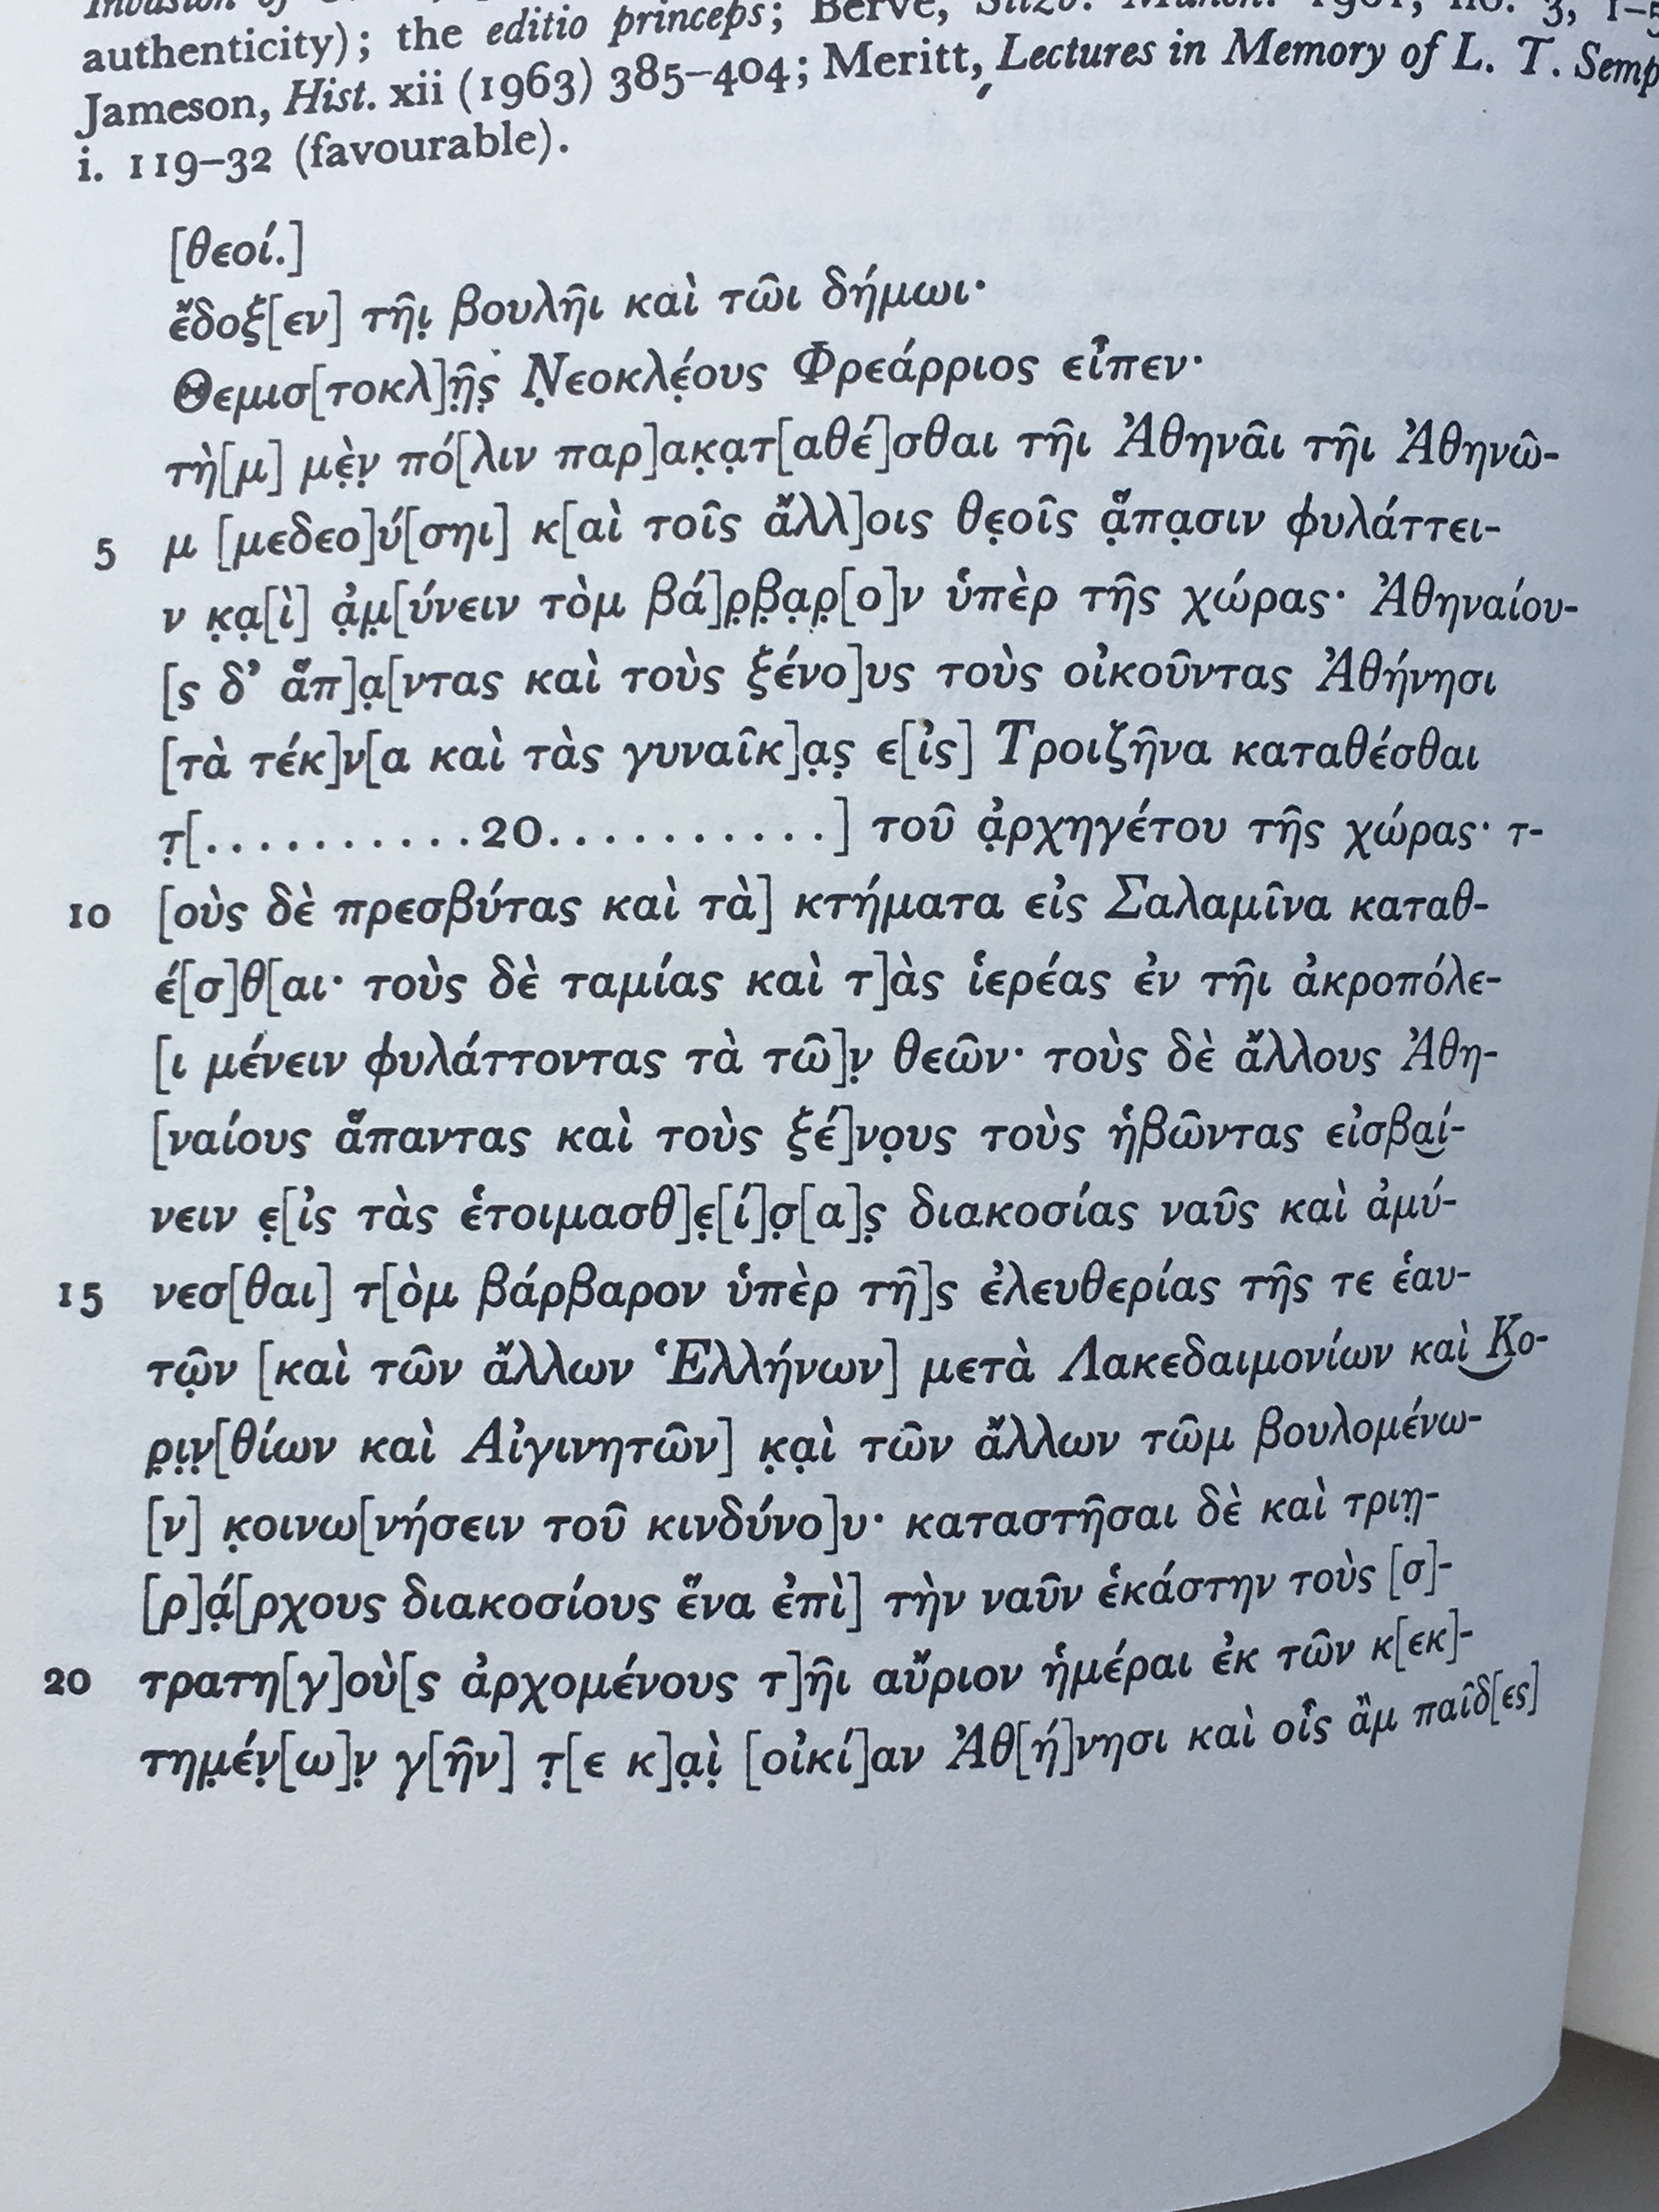 authenticity); the editio princeps; Berve,
Jameson, Hist. xii (1963) 385–404; Meritt, Lectures in Memory of L. T. Semp
i. 119–32 (favourable).
[θεοί.]
ἔδοξ[εν] τῆι̣ βουλῆι καὶ τῶι δήμωι·
Θεμισ[τοκλ]ῆ̣ς̣ Ν̣εοκλέ̣ους Φρεάρριος εἶπεν·
τὴ[μ] μὲ̣ν̣ πό[λιν παρ]ακ̣α̣τ[αθέ]σθαι τῆι Ἀθηνᾶι τῆι Ἀθηνῶ-
5 μ [μεδεο]ύ[σηι] κ[αὶ τοῖς ἄλλ]οις θε̣οῖς ἅ̣πα̣σιν φυλάττει-
ν κ̣α̣[ὶ] ἀ̣μ̣[ύνειν τὸμ βά]ρ̣β̣α̣ρ̣[ο]ν ὑπὲρ τῆς χώρας· Ἀθηναίου-
[ς δ’ ἅπ]α̣[ντας καὶ τοὺς ξένο]υς τοὺς οἰκοῦντας Ἀθήνησι
[τὰ τέκ]ν[α καὶ τὰς γυναῖκ]α̣ς̣ ε[ἰς] Τροιζῆνα καταθέσθαι
τ̣[...........20...........] τοῦ ἀ̣ρχηγέτου τῆς χώρας· τ-
10 [οὺς δὲ πρεσβύτας καὶ τὰ] κτήματα εἰς Σαλαμῖνα καταθ-
έ[σ]θ[αι· τοὺς δὲ ταμίας καὶ τ]ὰς ἱερέας ἐν τῆι ἀκροπόλε-
[ι μένειν φυλάττοντας τὰ τῶ]ν̣ θεῶν· τοὺς δὲ ἄλλους Ἀθη-
[ναίους ἅπαντας καὶ τοὺς ξέ]νο̣υς τοὺς ἡβῶντας εἰσβαί-
νειν ε̣[ἰς τὰς ἑτοιμασθ]ε̣[ί]σ̣[α]ς̣ διακοσίας ναῦς καὶ ἀμύ-
15 νεσ[θαι] τ[ὸμ βάρβαρον ὑπὲρ τῆ]ς ἐλευθερίας τῆς τε ἑαυ-
τῶ̣ν [καὶ τῶν ἄλλων Ἑλλήνων] μετὰ Λακεδαιμονίων καὶ Κο-
ρ̣ι̣ν̣[θίων καὶ Αἰγινητῶν] κ̣α̣ὶ τῶν ἄλλων τῶμ βουλομένω-
[ν] κ̣οινω[νήσειν τοῦ κινδύνο]υ· καταστῆσαι δὲ καὶ τριη̣-
[ρ]ά̣[ρχους διακοσίους ἕνα ἐπὶ] τὴν ναῦν ἑκάστην τοὺς [σ]-
20 τρατη[γ]οὺ[ς ἀρχομένους τ]ῆι αὔριον ἡμέραι ἐκ τῶν κ[εκ]-
τημ̣έν̣[ω]ν̣ γ̣[ῆν] τ̣[ε κ]α̣ὶ̣ [οἰκί]αν Ἀθ[ή]νησι καὶ οἷς ἂμ παῖδ[ες]